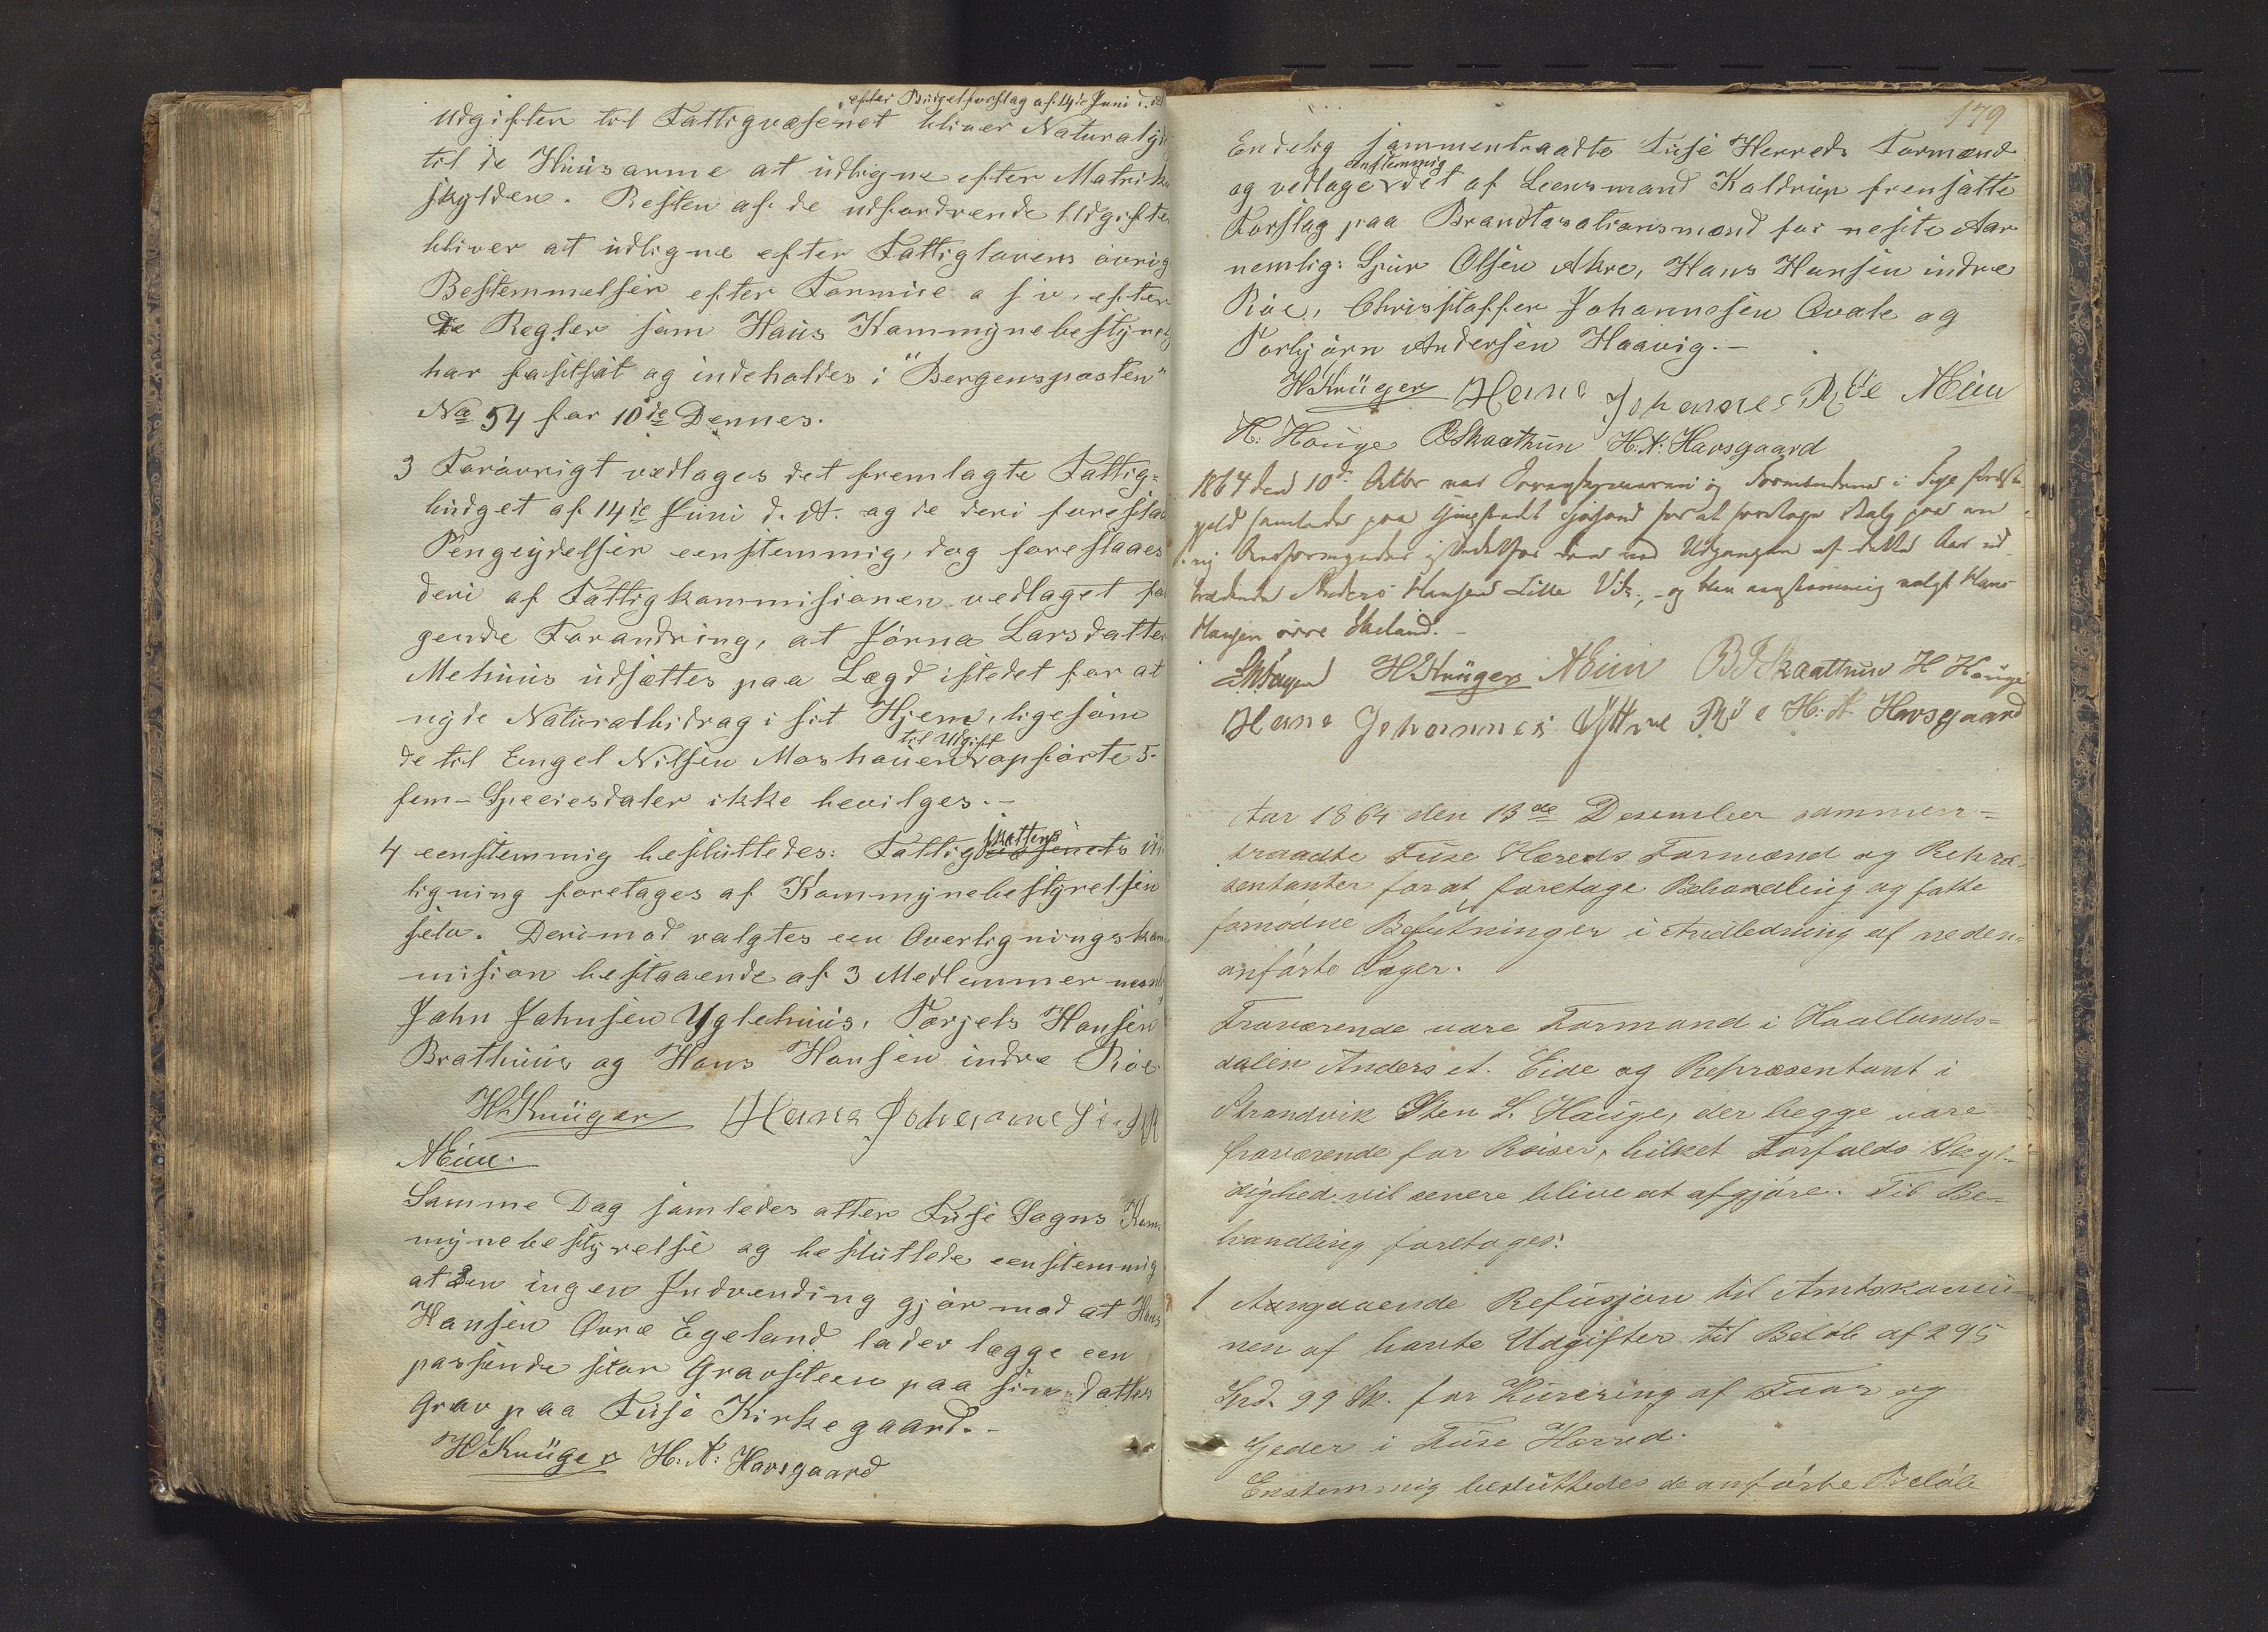 , efter Büdgetforslag af 14de Juni d. A
Udgiften til Fattigvæsenet bliver Naturalyd
til de Huusarme at udligne efter Matrik
skylden. Resten af de udfordrende Udgifter
bliver at udligne efter Fattiglovens øvrig
Bestemmelser efter Formue o s v, efter
de Regler som Haus Kommynebestyrel
har fastsat og indeholdes i "Bergensposten"
No 54 for 10de Dennes.
3 Forøvrigt vedtages det fremlagte Fattig-
budget af 14de Juni d. A. og de deri foreslaa
Pengeydelser eenstemmig, dog foreslaaes
deri af Fattigkommisionen vedtaget føl
gende Forandring, at Jørna Larsdatter
Mehuus udsættes paa Lægd istedet for at
nyde Naturalbidrag i sit Hjem, ligesom
til Udgift
de til Engel Nilsen Moshauen opførte 5-
fem- Speciesdaler ikke bevilges.-
skattens
4 eenstemmig besluttedes: Fattigvæsenets ud
ligning foretages af Kommynebestyrelsen
selv. Derimod valgtes een Overligningskom
mision bestaaende af 3 Medlemmer neml
John Johnsen Yglehuus, Torjels Hansen
Brathuus og Hans Hansen indre Røe
HKrüger Hans Johannesen
NEide
Samme Dag samledes atter Fuse Sogns Kom
mynebestyrelse og besluttede eenstemmig
at den ingen Indvending gjør mod at Hans
Hansen Øvre Egeland lader lægge een
passende stor Gravsteen paa sin datter
Grav paa Fuse Kirkegaard.-
HKrüger H: N: Havsgaard
179
Endelig sammentraadte Fuse Herreds Formænd
enstemmig
og vedtage det af Leensmand Koldrup fremsatte
Forslag paa Brandtaxationsmænd for neste Aar
nemlig: Sjur Olsen Ahre, Hans Hansen indre
Røe, Christoffer Johannesen Qvale og
Torbjørn Andersen Haavig.-
HKrüger Hans Johannes Røe NEide
H: Houge BSkaathun H: N: Havsgaard
1864 den 10de Octbr var Overformynderen og Formændene i Fuse Præste
gjeld samlede paa for at foretage Valg paa en
ny Overformynder istedetfor den ved Udgangen af dette Aar ud
trædende Anders Hansen Lille Vik, - og blev eenstemmig valgt Hans
Hansen øvre Ekeland.-
HKrüger NEide BSkaathun H Houge
Hans Johannes Yttre Røe H: N Havsgaard
Aar 1864 den 13de Desember sammen-
traadte Fuse Hereds Formænd og Repræ-
sentanter for at foretage Behandling og fatte
fornødne Beslutninger i Anledning af neden-
anførte Sager.
Fraværende vare Formand i Haallands-
dalen Anders et. Eide og Repræsentant i
Strandvik Sten S. Hauge, der begge vare
fraværende for Reiser, hilket Forfalds Skyl-
dighed vil senere blive at afgjøre. Til Be-
handling foretoges:
1 Aangaaende Refusjon til Amtskomu-
nen af havte Udgifter til Beløb af 295
Spd. 99 Sk. for Kurering af Faar og
Geder i Fuse Herred.
Enstemmig besluttedes de anførte Beløb